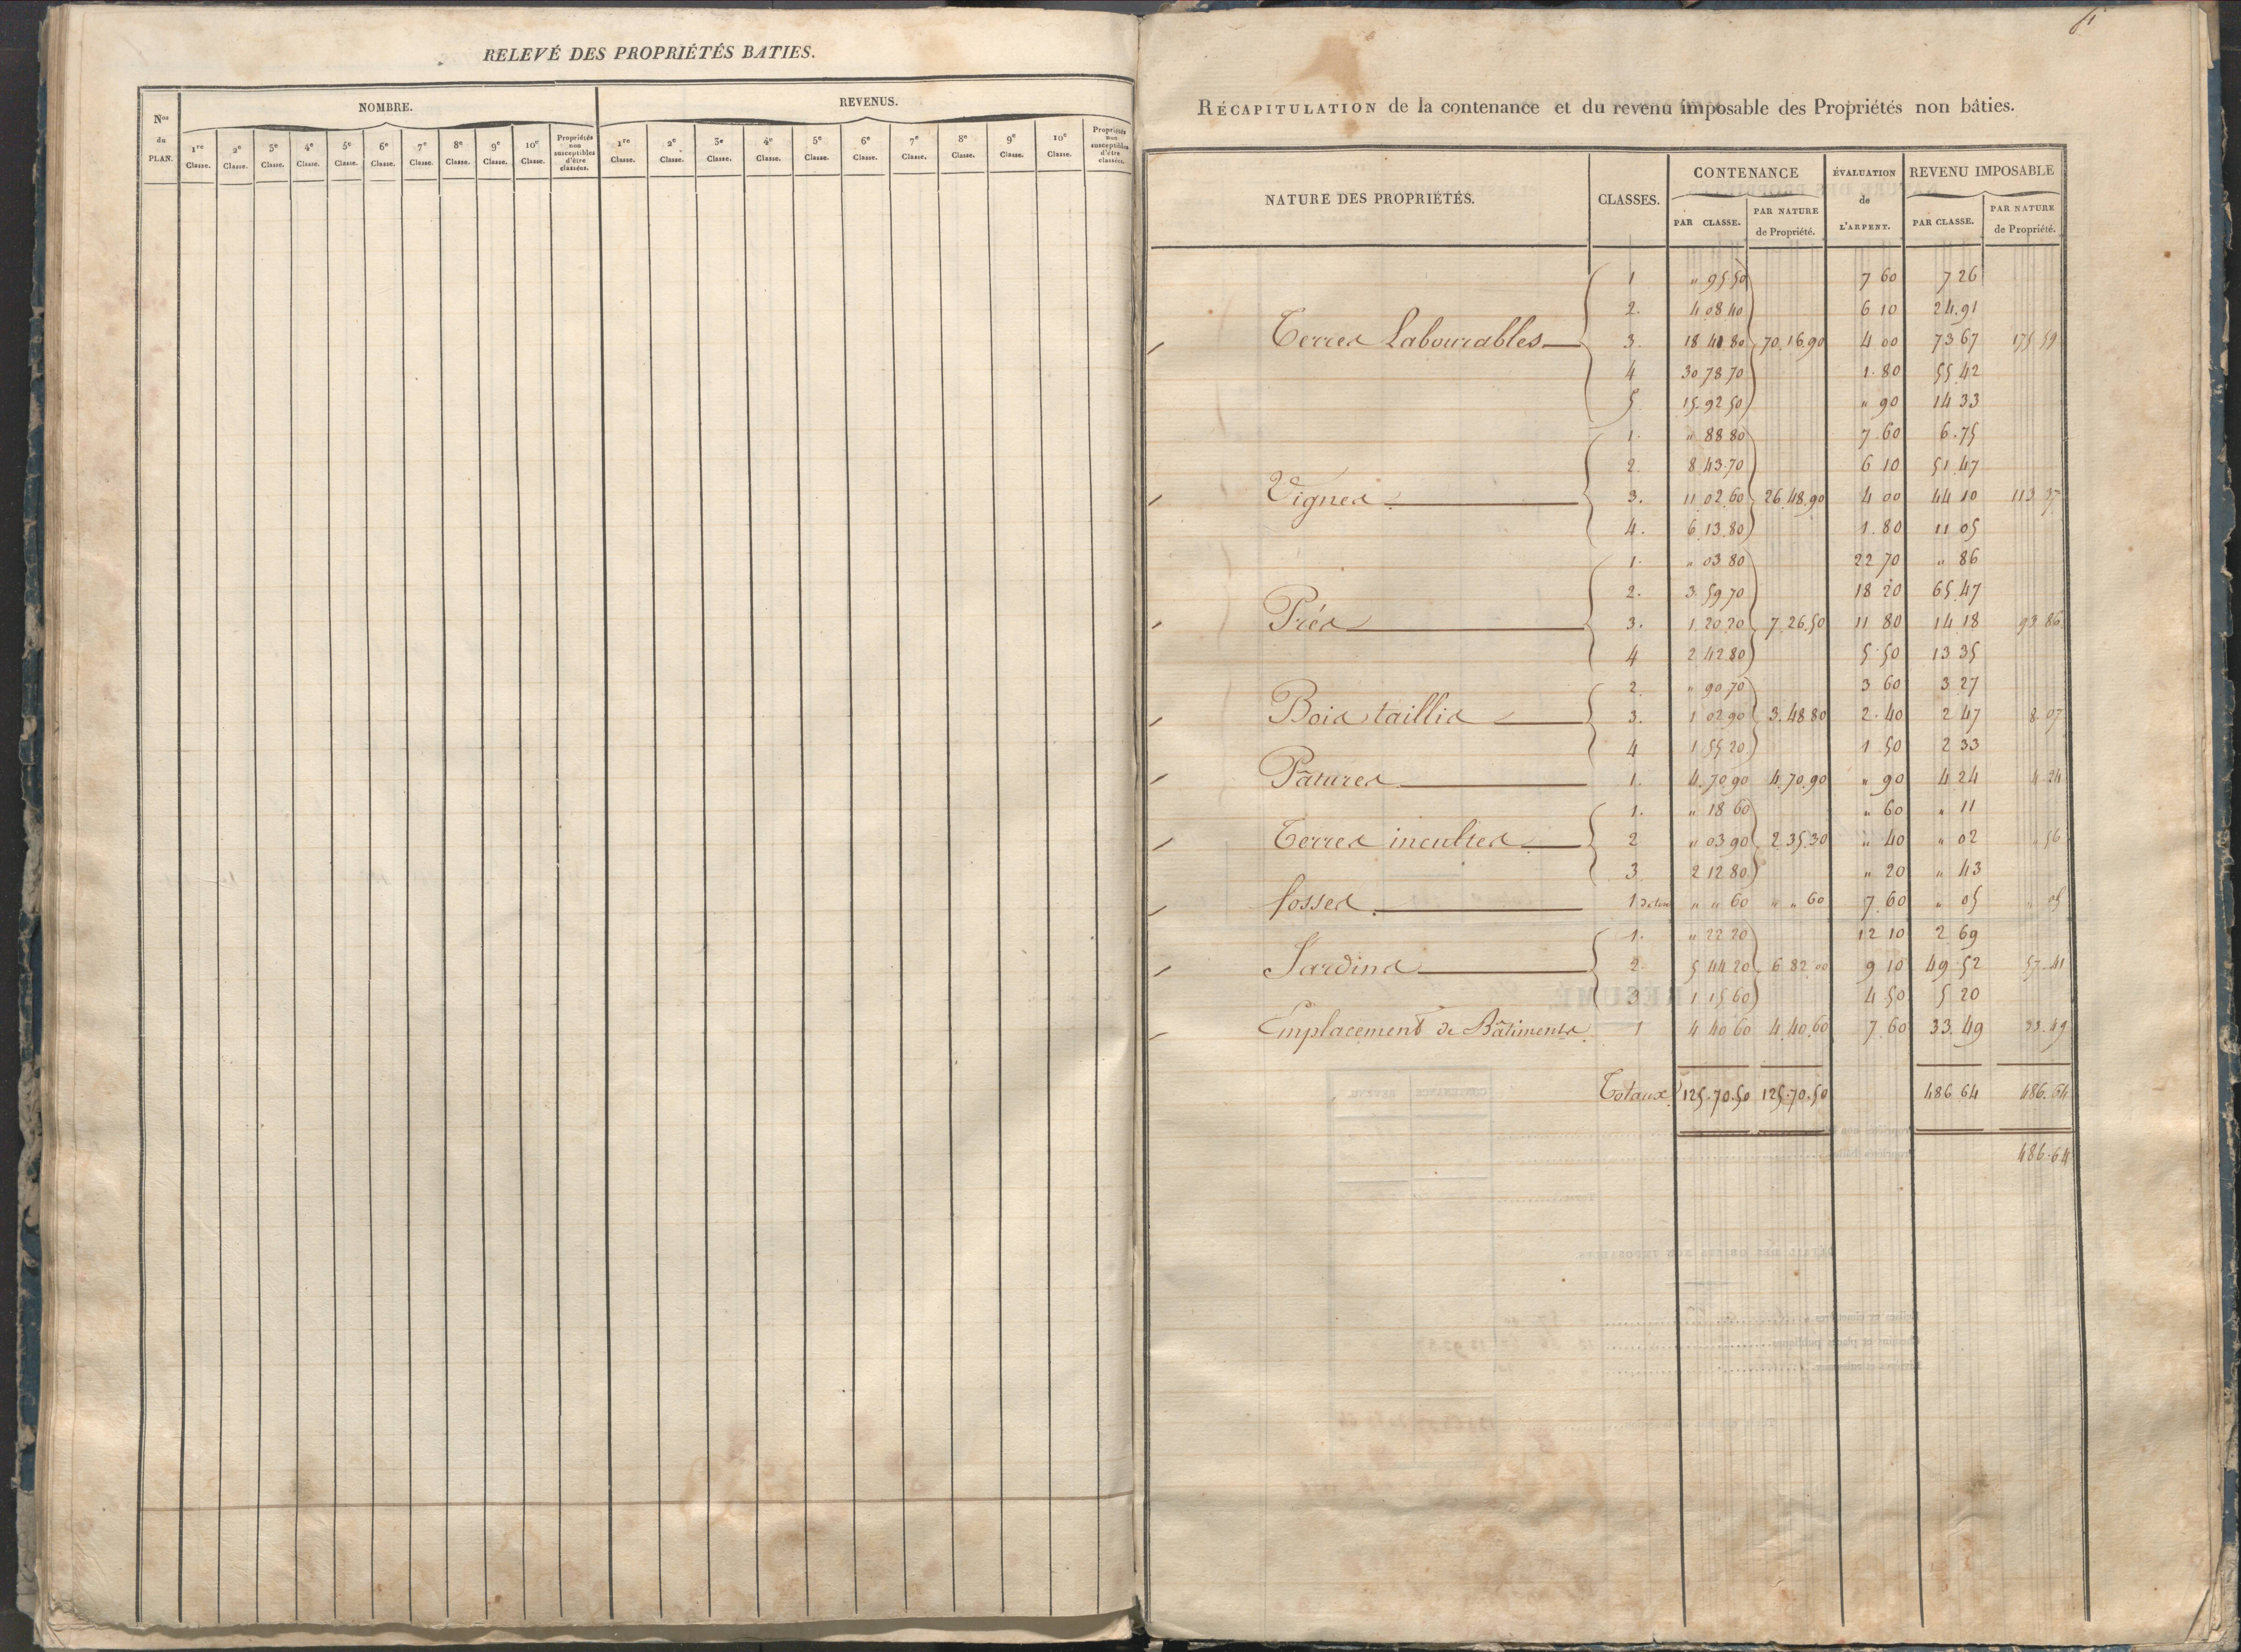 RELEVÉ DES PROPRIÉTÉS BATIES.
Nos du PLAN.
NOMBRE.
REVENUS.
1re Classe. 2e Classe. 3e Classe. 4e Classe. 5e Classe. 6e Classe. 7e Classe. 8e Classe. 9e Classe. 10e Classe. Propriétés non susceptibles d'être classées.
1re Classe. 2e Classe. 3e Classe. 4e Classe. 5e Classe. 6e Classe. 7e Classe. 8e Classe. 9e Classe. 10e Classe. Propriétés non susceptibles d'être classées.
RÉCAPITULATION de la contenance et du revenu imposable des Propriétés non bâties.
NATURE DES PROPRIÉTÉS. CLASSES. CONTENANCE ÉVALUATION de L'ARPENT. REVENU IMPOSABLE
PAR CLASSE. PAR NATURE de Propriété. PAR CLASSE. PAR NATURE de Propriété.
1 " 95 50 7 60 7 26
2. 4 08 40 6 10 24.91
Terres Labourables 3. 18 41 80 70.16.90 4 00 73 67 175 59
4 30 78 70 1.80 55 42
5 15.92 50 " 90 14 33
1. " 88 80 7.60 6.75
2. 8.43.70 6 10 51.47
Vignes 3. 11.02.60 26.48.90 4 00 44 10 113 37
4. 6.13.80 1.80 11 05
1. " 03 80 22 70 " 86
2. 3.59 70 18 20 65.47
Prés 3. 1.20 20 7.26.50 11 80 14 18 93 86
4 2 42 80 5.50 13 35
2. " 90 70 3 60 3.27
Bois taillis 3. 1 02 90 3.48 80 2.40 2 47 8.07
4 1 55 20 1 50 2 33
Pâtures 1. 4.70 90 4.70.90 " 90 4.24 4.24
1. " 18 60 " 60 " 11
Terres incultes 2 " 03 90 2.35.30 " 40 " 02 " 56
3 2 12 80 " 20 " 43
fosses. 1 " " 60 " " 60 7.60 " 05 " 05
1. " 22 20 12 10 2 69
Jardins 2. 5 44 20 6 82 00 9 10 49.52 57.41
3 1 15 60 4 50 5 20
Emplacement de Bâtiments. 1 4 40 60 4.40.60 7.60 33.49 33.49
Totaux 125.70.50 125.70.50 486 64 486.64
486.64